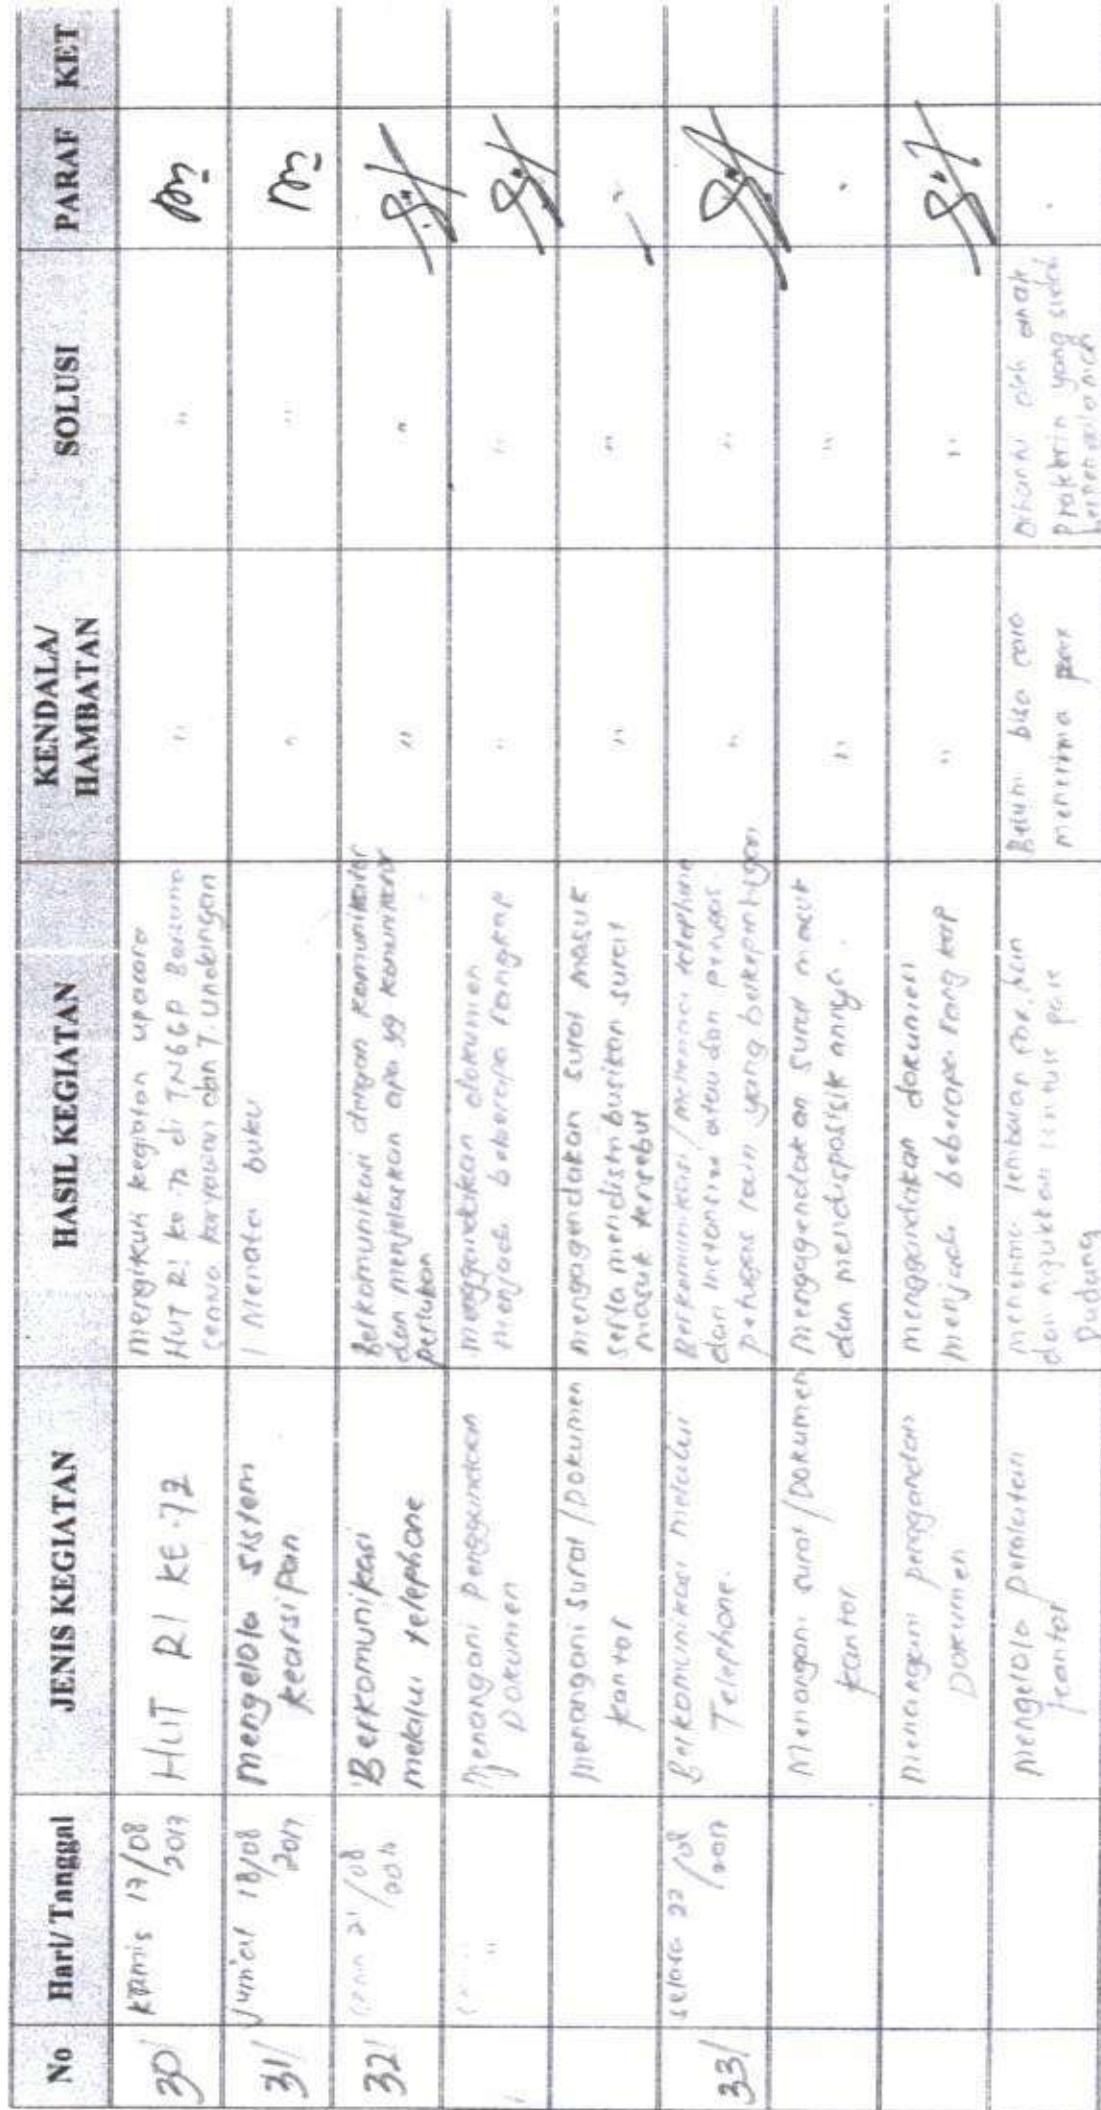 No Hari/Tanggal JENIS KEGIATAN HASIL KEGIATAN KENDALA/ HAMBATAN SOLUSI PARAF KET
30/ Kamis 17/08 2017
HUT RI KE-72
mengikuti kegiatan upacara
HUT RI ke-72 di TNGGP Bersama
karyawan dan T. Undangan
"
"
31/ Jum'at 18/08 2017
mengelola sistem
kearsipan
Menata buku
"
"
32/ 21/08
Berkomunikasi
melalui telephone
Berkomunikasi dengan komunikator
dan menjelaskan apa yg komunikator
perlukan
"
"
"
Menangani Penggandaan
Dokumen
menggandakan dokumen
menjadi beberapa rangkap
"
"
menangani surat / Dokumen
kantor
mengagendakan surat masuk
serta mendistribusikan surat
masuk tersebut
"
"
33/ selasa 22/08 2017
Berkomunikasi melalui
Telephone.
Berkomunikasi / menerima telephone
dari instansi atau dan petugas
petugas lain yang berkepentingan
"
"
Menangani surat / Dokumen
kantor
mengagendakan surat masuk
dan mendisposisikannya.
"
"
menangani penggandaan
Dokumen
menggandakan dokumen
menjadi beberapa rangkap
"
"
mengelola peralatan
kantor
menerima lembaran
dan
Belum bisa cara
menerima
Dibantu oleh anak
prakerin yang sudah